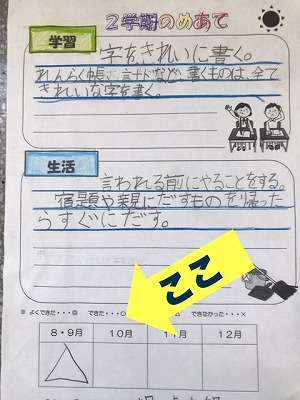 2学期のめあて
学習
字をきれいに書く。
れんらく帳、言十ドなど、書くものは、全て
きれいな字を書く。
生活
言われる前にやることをする。
宿題や親にだすものを帰った
らすぐにだす。
ここ
※ よくできた・・・◎ できた・・・○ できなかった・・・×
8・9月 10月 11月 12月
△